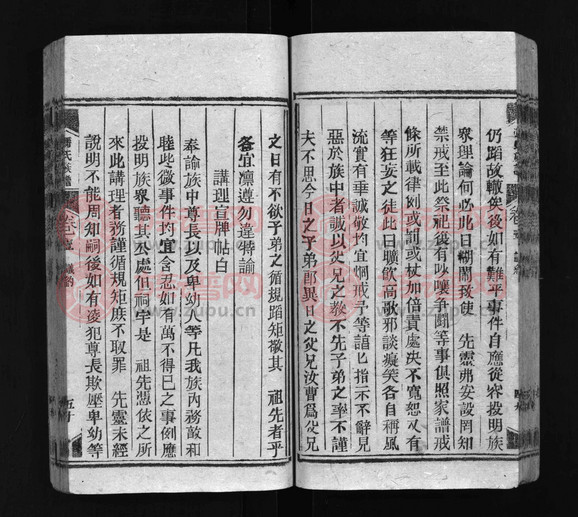 仍蹈故轍矣後如有難平事件自應從容投明族
衆理論何必此日嘲鬧致使 先靈弗安設罔知
禁戒至此祭祀後有吵嚷爭鬧等事俱照家譜戒
條所載律則或罰或杖加倍責處決不寬恕又有
等狂妄之徒此日曠飲高歌邪談癡笑各自稱風
流實有乖誠敬均宜烱戒子等諠匕指示不辭見
惡於族中者誠以父兄之教不先子弟之率不謹
夫不思今日之子弟卽異日之父兄汝曹爲父兄
之日有不欲子弟之循規蹈矩敬其 祖先者乎
各宜凛遵勿違特諭
講理宣牌帖白
奉諭族中尊長以及卑幼人等凡我族內務敵和
睦些微事件均宜含忍如有萬不得已之事例應
投明族衆聽其公處但祠宇是 祖先憑依之所
來此講理者務謹循規矩庶不取罪 先靈未經
說明不能周知嗣後如有凌犯尊長欺壓卑幼等
氏族譜
卷
五十
族譜網
www.zupu.cn